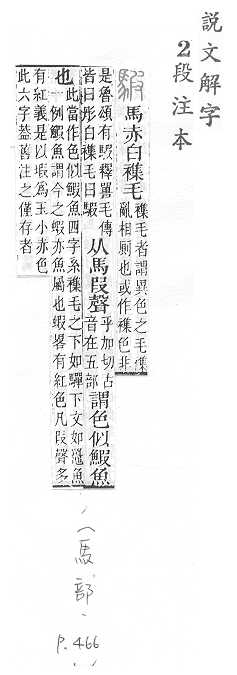 說文解字
2段注本
騢 馬赤白襍毛
襍毛者謂異色之毛襍
亂相厠也或作襍色非
是魯頌有騢釋嘼毛傳
皆曰彤白襍毛曰騢
从馬叚聲
乎加切古
音在五部
謂色似鰕魚
也
此當作色似鰕魚四字系襍毛之下如驒下文如鼉魚
一例鰕魚謂今之蝦亦魚屬也蝦畧有紅色凡叚聲多
有紅義是以瑕爲玉小赤色
此六字蓋舊注之僅存者
(馬部)
P.466